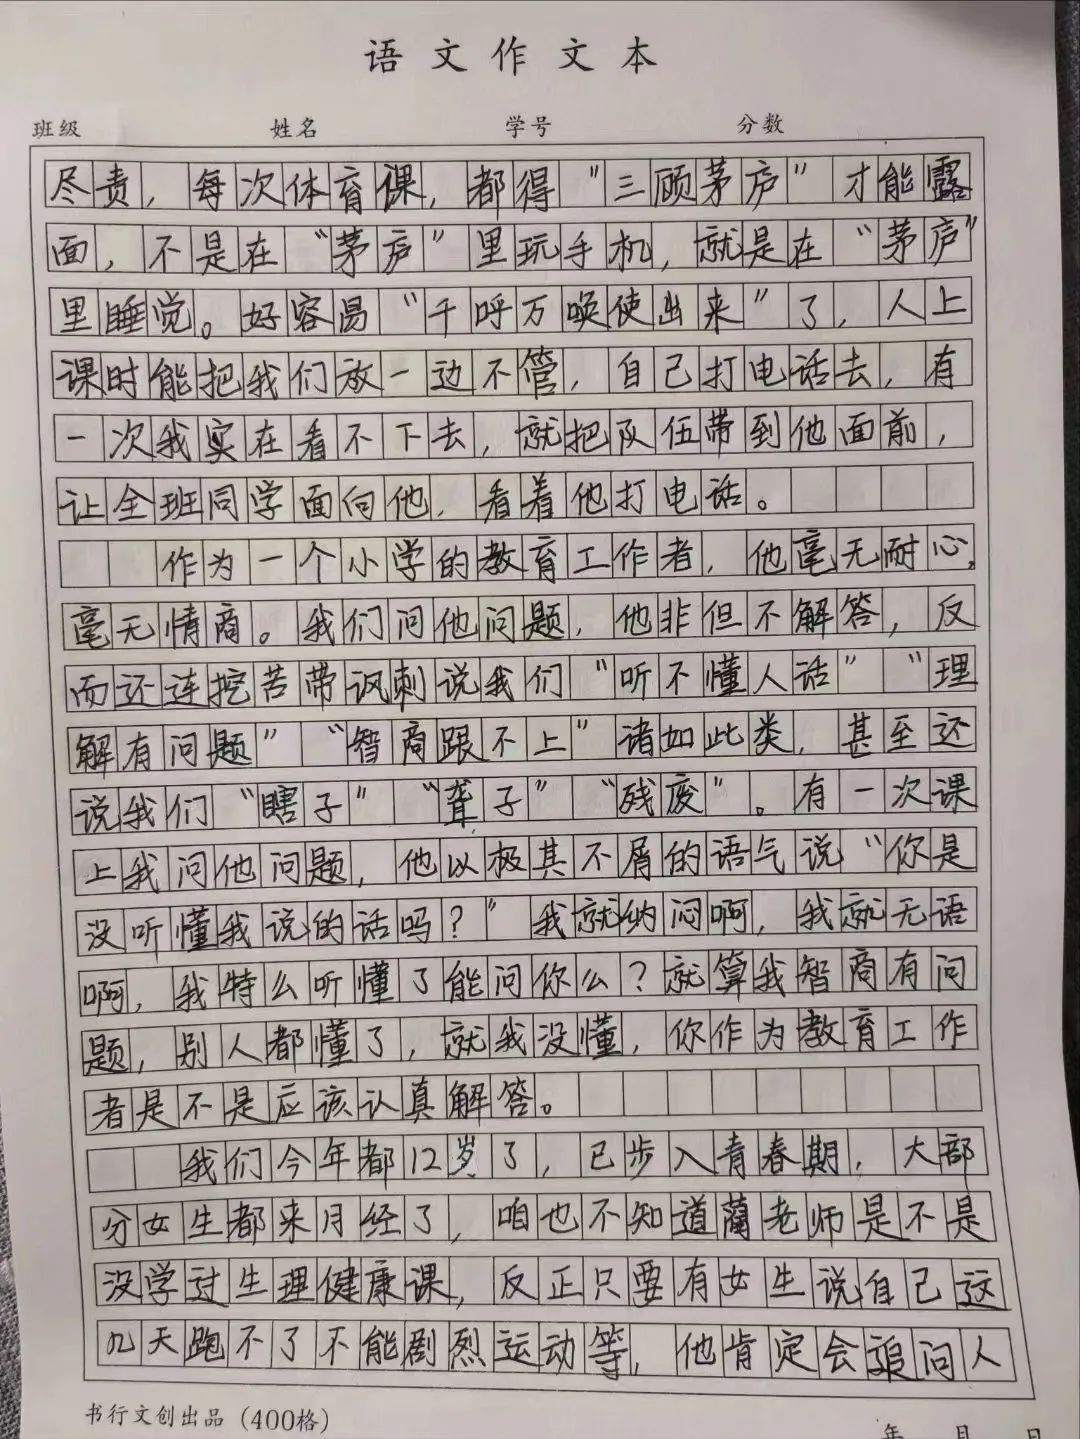 语文作文本
班级 姓名 学号 分数
尽责，每次体育课，都得“三顾茅庐”才能露
面，不是在“茅庐”里玩手机，就是在“茅庐”
里睡觉。好容易“千呼万唤使出来”了，人上
课时能把我们放一边不管，自己打电话去，有
一次我实在看不下去，就把队伍带到他面前，
让全班同学面向他，看着他打电话。
作为一个小学的教育工作者，他毫无耐心，
毫无情商。我们问他问题，他非但不解答，反
而还连挖苦带讽刺说我们“听不懂人话”“理
解有问题”“智商跟不上”诸如此类，甚至还
说我们“瞎子”“聋子”“残废”。有一次课
上我问他问题，他以极其不屑的语气说“你是
没听懂我说的话吗？”我就纳闷啊，我就无语
啊，我特么听懂了能问你么？就算我智商有问
题，别人都懂了，就我没懂，你作为教育工作
者是不是应该认真解答。
我们今年都12岁了，已步入青春期，大部
分女生都来月经了，咱也不知道蔺老师是不是
没学过生理健康课，反正只要有女生说自己这
几天跑不了不能剧烈运动等，他肯定会追问人
书行文创出品（400格）
年 月 日